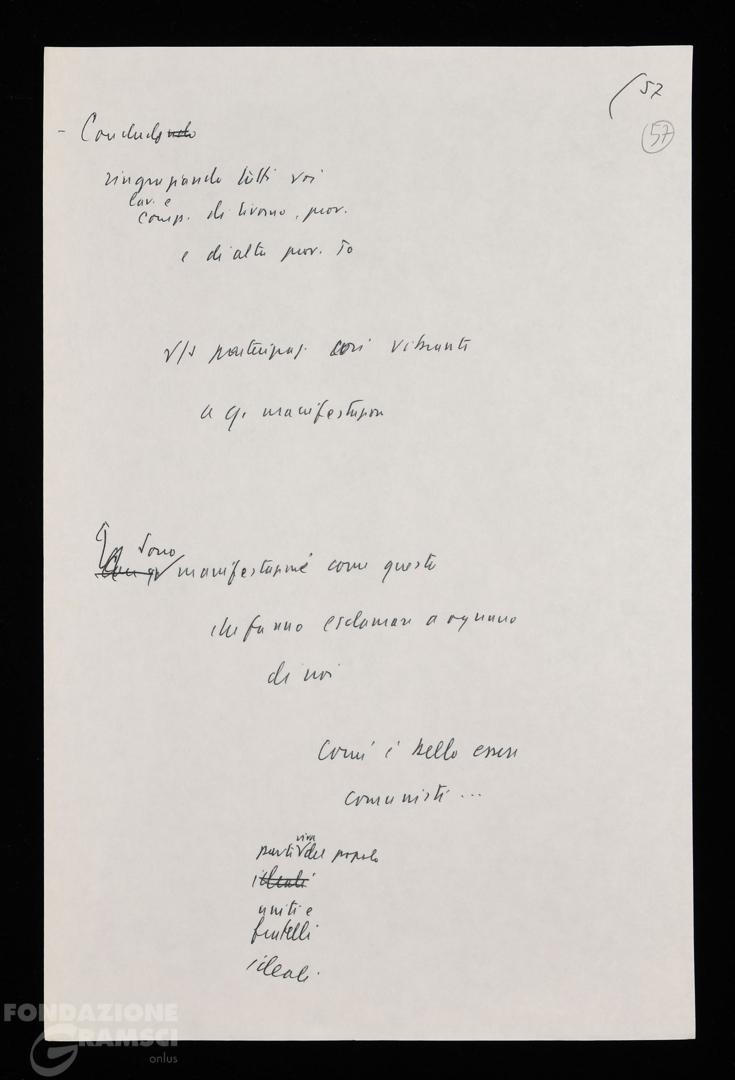 57
57
- Concludo
ringraziando tutti voi
lav. e
comp. di Livorno, prov.
e di altre prov. To
v/s partecipaz. così vibrante
a q. manifestazion
Sono
manifestazioni come queste
che fanno esclamare a ognuno
di noi
Com'è bello essere
comunisti ...
viva
parte del popolo
ideali
uniti e
fratelli
ideali.
FONDAZIONE
GRAMSCI
onlus